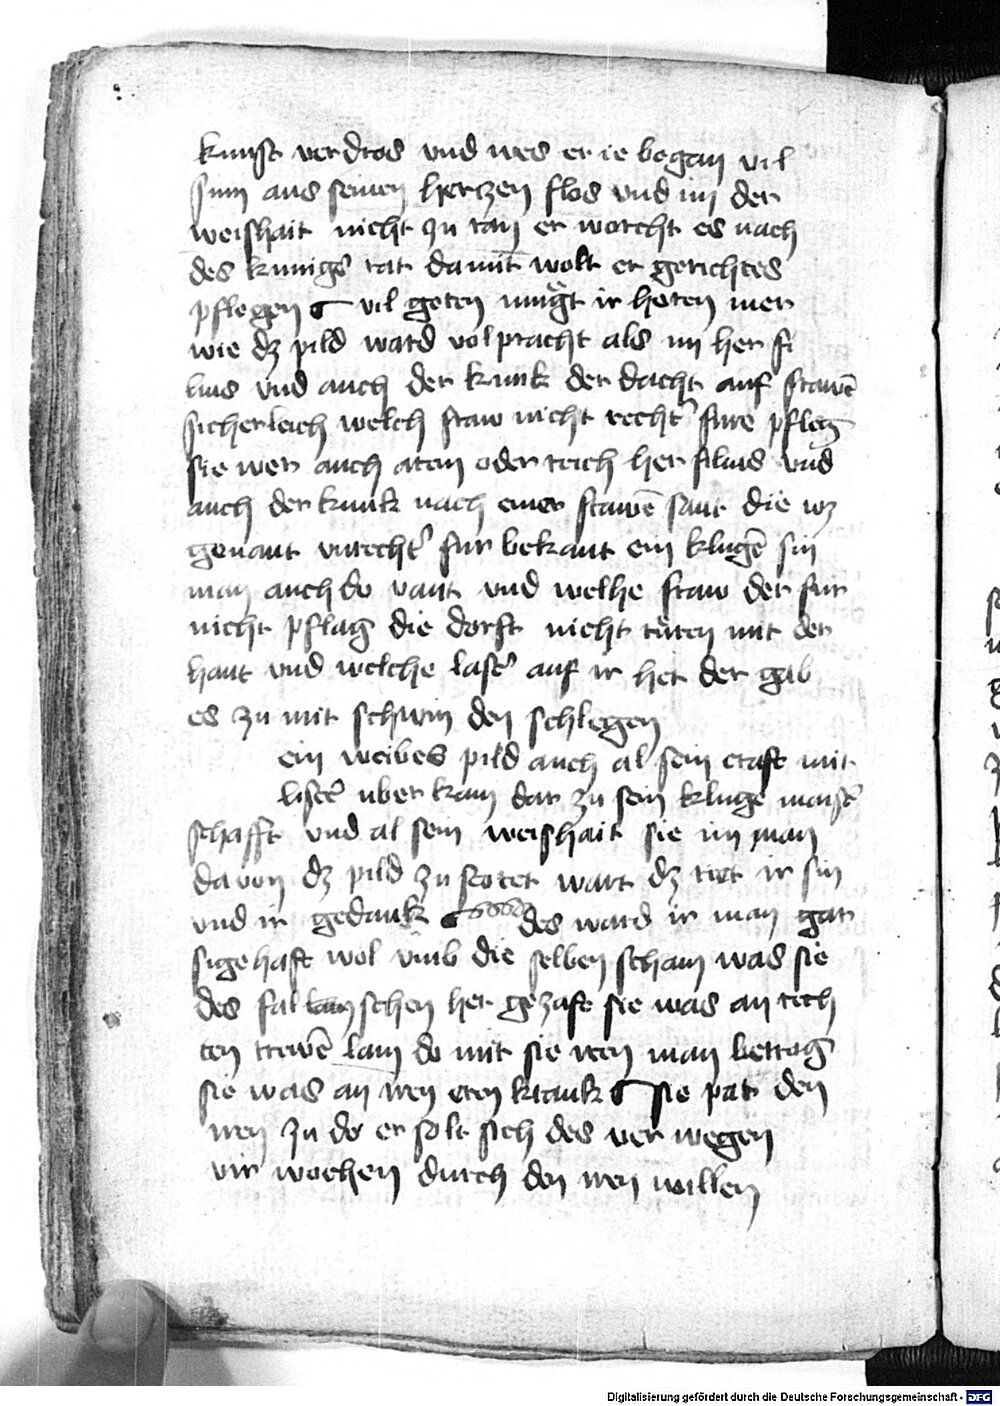 kunst verdros vnd wes er ie began vil
sinn aus seinen hertzen flos vnd im der
weishait nicht zu ran er worcht es nach
des kunigs rat damit wolt er gerichtes
pflegen vil geten mugt ir horen mer
wie dz pild ward volpracht als im her fi
lius vnd auch der kunk der dacht auf frawē
sicherleich welch fraw nicht recht fure pfleg
sie wer auch arm oder reich her filius vnd
auch der kunk nach einer frawē sant die wz
genant vnrecht fur bekant ein klugē sin
man auch do vant vnd welhe fraw der fur
nicht pflag die dorft nicht rüren mit der
hant vnd welche laster auf ir het der gab
es zu mit schwin den schlegen
ein weibes pild auch al sein craft mit
listē uber kam dar zu sein kluge maister
schafft vnd al sein weishait sie im nam
davon dz pild zu storet wart dz tiet ir sin
vnd ir gedank des ward ir man gar
sigehaft wol vmb die selben scham was sie
des fal schen her gezaft sie was an rech
ten trewē lam do mit sie iren man betrog
sie was an iren eren krank sie pat den
iren zu do er solt sich des ver wegen
vir wochen durch den iren willen
Digitalisierung gefördert durch die Deutsche Forschungsgemeinschaft - DFG